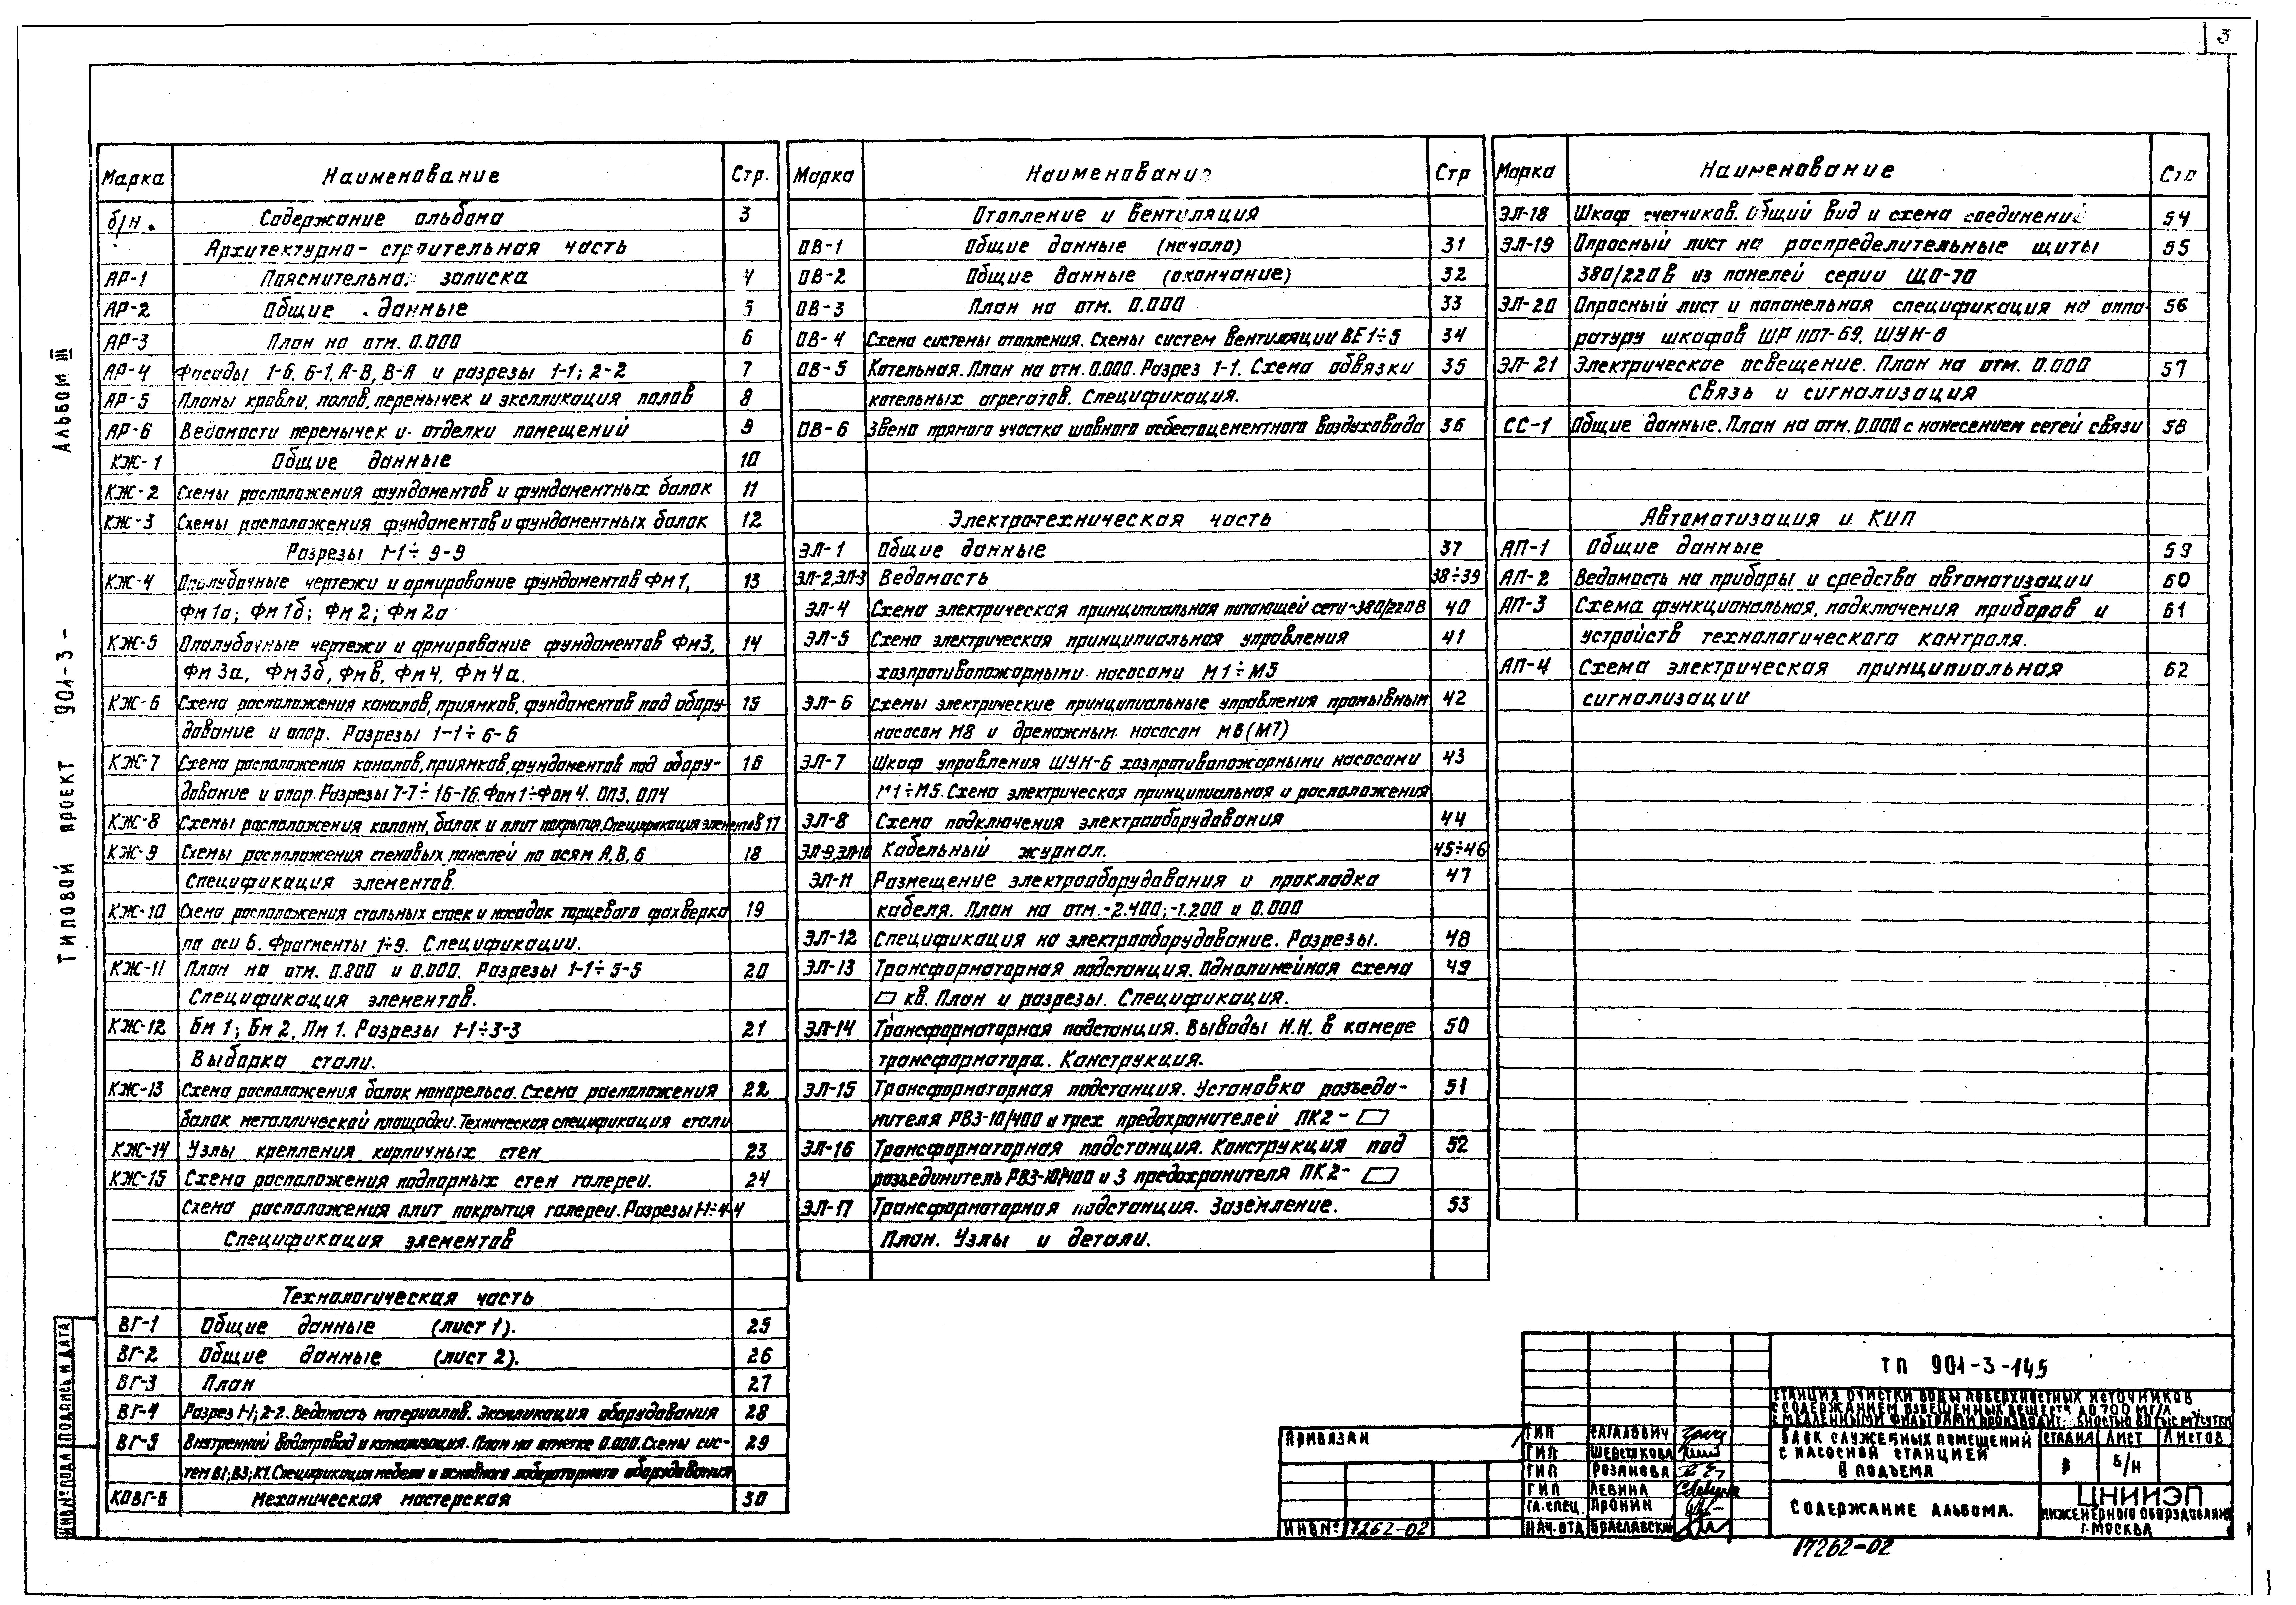 3
Альбом III
Типовой проект 901-3-
Марка Наименование Стр.
б/н. Содержание альбома 3
Архитектурно-строительная часть
АР-1 Пояснительная записка 4
АР-2 Общие данные 5
АР-3 План на отм. 0.000 6
АР-4 Фасады 1-6, 6-1, А-В, В-А и разрезы 1-1; 2-2 7
АР-5 Планы кровли, полов, перемычек и экспликация полов 8
АР-6 Ведомости перемычек и отделки помещений 9
КЖ-1 Общие данные 10
КЖ-2 Схемы расположения фундаментов и фундаментных балок 11
КЖ-3 Схемы расположения фундаментов и фундаментных балок 12
Разрезы 1-1÷9-9
КЖ-4 Опалубочные чертежи и армирование фундаментов Фм1, 13
Фм1а; Фм1б; Фм2; Фм2а
КЖ-5 Опалубочные чертежи и армирование фундаментов Фм3, 14
Фм3а, Фм3б, Фмв, Фм4, Фм4а.
КЖ-6 Схема расположения каналов, приямков, фундаментов под обору- 15
дование и опор. Разрезы 1-1÷6-6
КЖ-7 Схема расположения каналов, приямков, фундаментов под обору- 16
дование и опор. Разрезы 7-7÷16-16. Фом1÷Фом4. ОП3, ОП4
КЖ-8 Схемы расположения колонн, балок и плит покрытия. Спецификация элементов 17
КЖ-9 Схемы расположения стеновых панелей по осям А, В, 6 18
Спецификация элементов.
КЖ-10 Схема расположения стальных стоек и насадок торцевого фахверка 19
по оси 6. Фрагменты 1÷9. Спецификации.
КЖ-11 План на отм. 0.800 и 0.000. Разрезы 1-1÷5-5 20
Спецификация элементов.
КЖ-12 Бм1; Бм2, Пм1. Разрезы 1-1÷3-3 21
Выборка стали.
КЖ-13 Схема расположения балок монорельса. Схема расположения 22
балок металлической площадки. Техническая спецификация стали
КЖ-14 Узлы крепления кирпичных стен 23
КЖ-15 Схема расположения подпорных стен галереи. 24
Схема расположения плит покрытия галереи. Разрезы 1-1÷4-4
Спецификация элементов
Технологическая часть
ВГ-1 Общие данные (лист 1). 25
ВГ-2 Общие данные (лист 2). 26
ВГ-3 План 27
ВГ-4 Разрез 1-1; 2-2. Ведомость материалов. Экспликация оборудования 28
ВГ-5 Внутренний водопровод и канализация. План на отметке 0.000. Схемы сис- 29
тем В1; В3; К1. Спецификация мебели и основного лабораторного оборудования
КОВГ-6 Механическая мастерская 30
Марка Наименование Стр
Отопление и вентиляция
ОВ-1 Общие данные (начало) 31
ОВ-2 Общие данные (окончание) 32
ОВ-3 План на отм. 0.000 33
ОВ-4 Схема системы отопления. Схемы систем вентиляции ВЕ1÷5 34
ОВ-5 Котельная. План на отм. 0.000. Разрез 1-1. Схема обвязки 35
котельных агрегатов. Спецификация.
ОВ-6 Звено прямого участка шовного асбестоцементного воздуховода 36
Электротехническая часть
ЭЛ-1 Общие данные 37
ЭЛ-2, ЭЛ-3 Ведомость 38÷39
ЭЛ-4 Схема электрическая принципиальная питающей сети ~380/220В 40
ЭЛ-5 Схема электрическая принципиальная управления 41
хозпротивопожарными насосами М1÷М5
ЭЛ-6 Схемы электрические принципиальные управления промывным 42
насосом М8 и дренажным насосом М6(М7)
ЭЛ-7 Шкаф управления ШУН-6 хозпротивопожарными насосами 43
М1÷М5. Схема электрическая принципиальная и расположения
ЭЛ-8 Схема подключения электрооборудования 44
ЭЛ-9, ЭЛ-10 Кабельный журнал. 45÷46
ЭЛ-11 Размещение электрооборудования и прокладка 47
кабеля. План на отм. -2.400; -1.200 и 0.000
ЭЛ-12 Спецификация на электрооборудование. Разрезы. 48
ЭЛ-13 Трансформаторная подстанция. Однолинейная схема 49
▱ кв. План и разрезы. Спецификация.
ЭЛ-14 Трансформаторная подстанция. Выводы Н.Н. в камере 50
трансформатора. Конструкция.
ЭЛ-15 Трансформаторная подстанция. Установка разъеди- 51
нителя РВЗ-10/400 и трех предохранителей ПК2-▱
ЭЛ-16 Трансформаторная подстанция. Конструкция под 52
разъединитель РВЗ-10/400 и 3 предохранителя ПК2-▱
ЭЛ-17 Трансформаторная подстанция. Заземление. 53
План. Узлы и детали.
Марка Наименование Стр
ЭЛ-18 Шкаф счетчиков. Общий вид и схема соединений 54
ЭЛ-19 Опросный лист на распределительные щиты 55
380/220в из панелей серии ЩО-70
ЭЛ-20 Опросный лист и попанельная спецификация на аппа- 56
ратуру шкафов ШР1107-69, ШУН-6
ЭЛ-21 Электрическое освещение. План на отм. 0.000 57
Связь и сигнализация
СС-1 Общие данные. План на отм. 0.000 с нанесением сетей связи 58
Автоматизация и КИП
АП-1 Общие данные 59
АП-2 Ведомость на приборы и средства автоматизации 60
АП-3 Схема функциональная, подключения приборов и 61
устройств технологического контроля.
АП-4 Схема электрическая принципиальная 62
сигнализации
ИНВ № ПОДЛ ПОДПИСЬ И ДАТА
ПРИВЯЗАН
ИНВ № 17262-02
ГИП САГАЛОВИЧ
ГИП ШЕРСТЯКОВА
ГИП РОЗАНОВА
ГИП ЛЕВИНА
ГЛ.СПЕЦ. ПРОНИН
НАЧ.ОТД БРАСЛАВСКИЙ
ТП 901-3-145
СТАНЦИЯ ОЧИСТКИ ВОДЫ ПОВЕРХНОСТНЫХ ИСТОЧНИКОВ
С СОДЕРЖАНИЕМ ВЗВЕШЕННЫХ ВЕЩЕСТВ ДО 700 МГ/Л
С МЕДЛЕННЫМИ ФИЛЬТРАМИ
БЛОК СЛУЖЕБНЫХ ПОМЕЩЕНИЙ
С НАСОСНОЙ СТАНЦИЕЙ
II ПОДЪЕМА
СТАДИЯ ЛИСТ ЛИСТОВ
Р Б/Н
СОДЕРЖАНИЕ АЛЬБОМА.
ЦНИИЭП
ИНЖЕНЕРНОГО ОБОРУДОВАНИЯ
Г. МОСКВА
17262-02